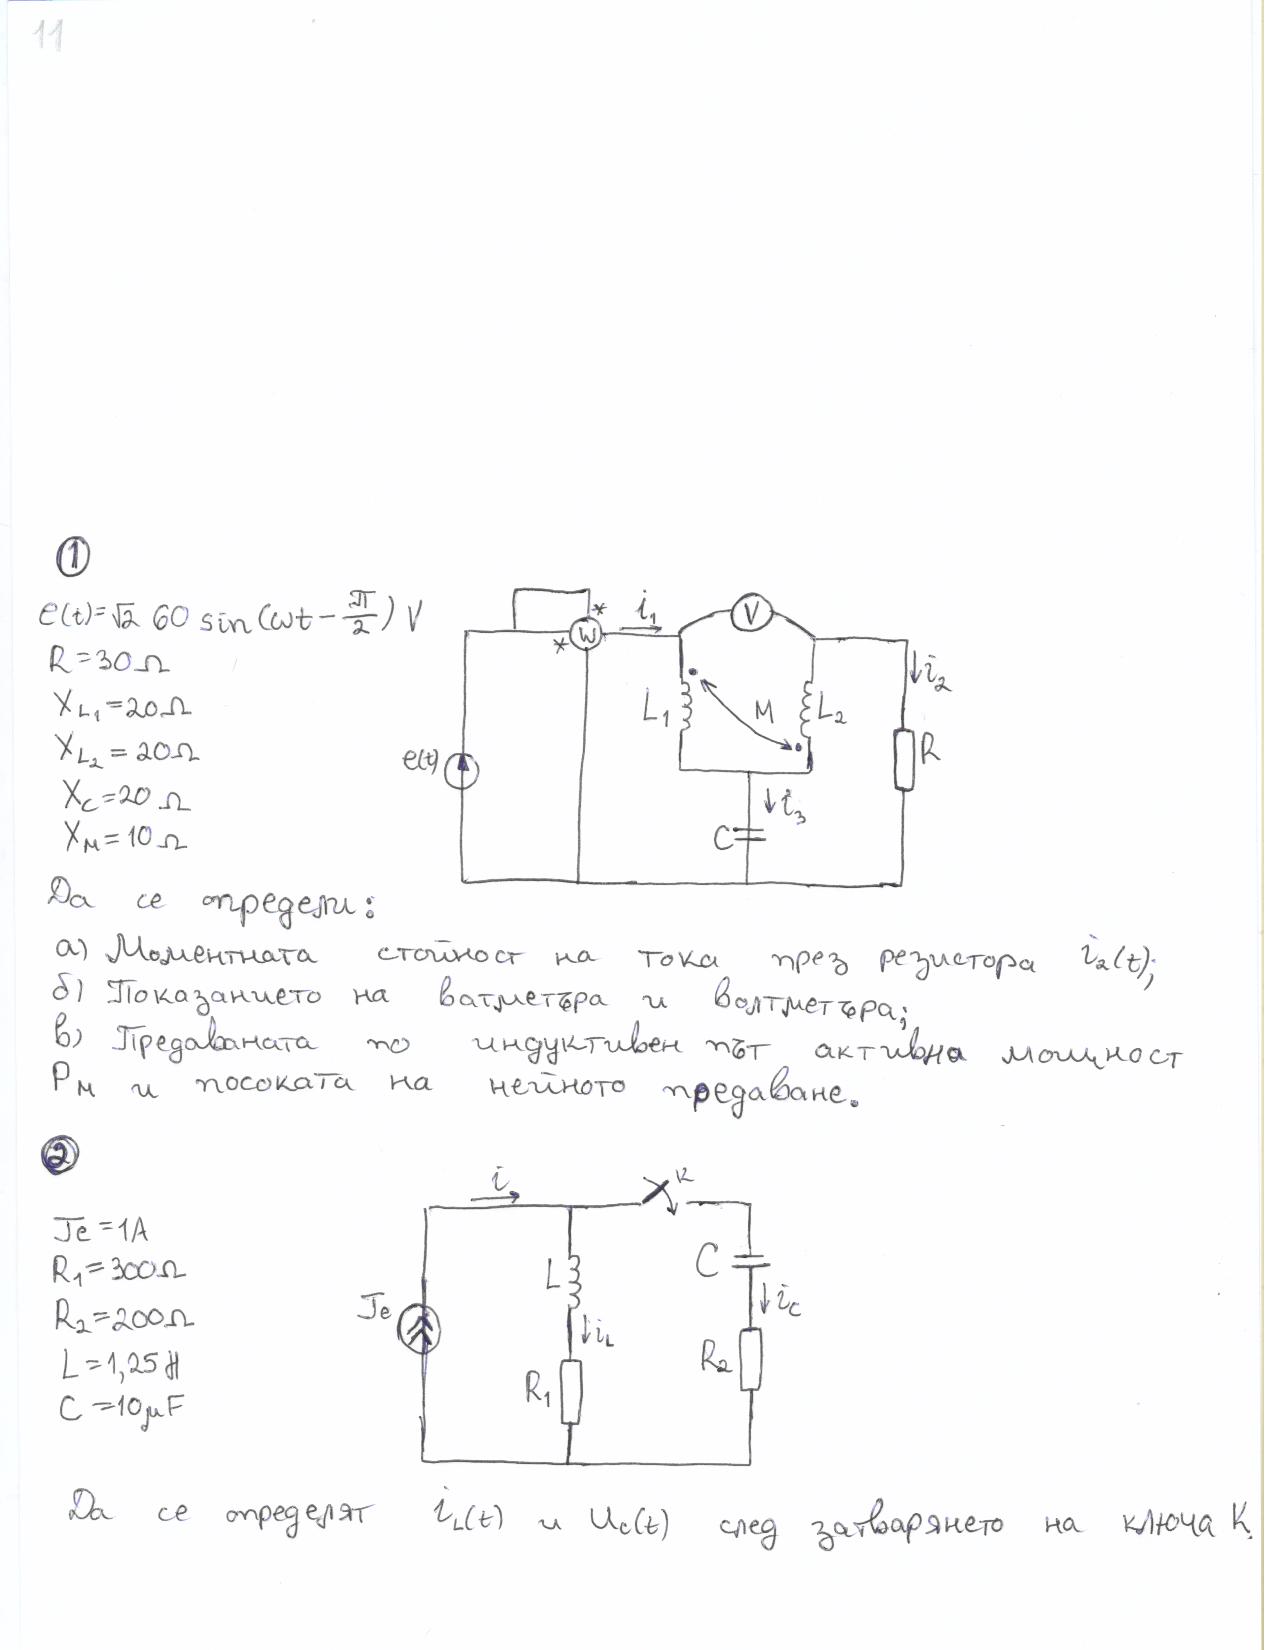 11
1
e(t)=√2 60 sin(ωt-π/2) V
R=30Ω
XL1=20Ω
XL2=20Ω
XC=20Ω
XM=10Ω
e(t)
*
*
W
i1
V
L1
M
L2
i2
R
C
i3
Да се определи:
а) Моментната стойност на тока през резистора i2(t);
б) Показанието на ватметъра и волтметъра;
в) Предаваната по индуктивен път активна мощност
PM и посоката на нейното предаване.
2
Je=1A
R1=300Ω
R2=200Ω
L=1,25H
C=10μF
i
K
Je
L
iL
R1
C
iC
R2
Да се определят iL(t) и uC(t) след затварянето на ключа K.